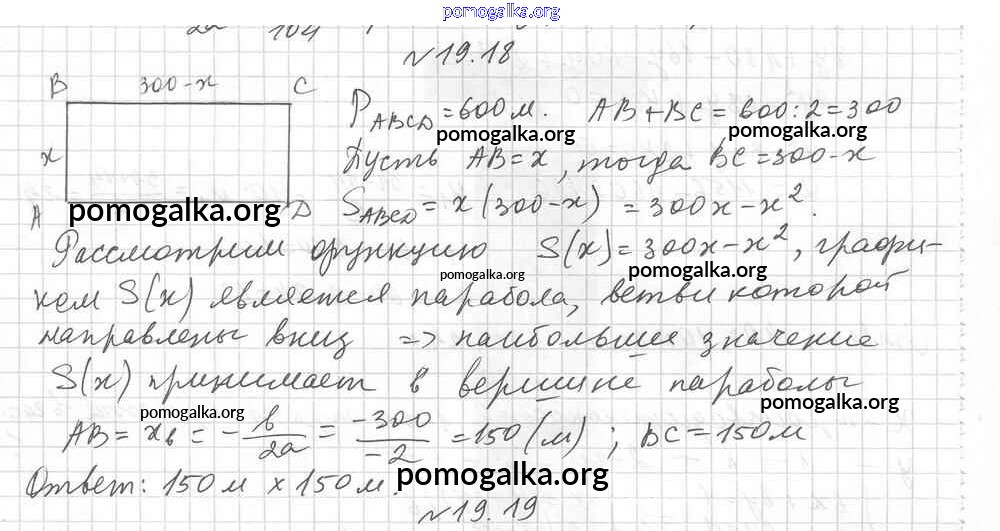 pomogalka.org
2a 104
№19.18
B 300-x C
P_ABCD = 600 м. AB + BC = 600 : 2 = 300
pomogalka.org pomogalka.org
x Пусть AB = x, тогда BC = 300-x
A D S_ABCD = x(300-x) = 300x - x².
pomogalka.org
Рассмотрим функцию S(x) = 300x - x², графи-
pomogalka.org pomogalka.org
ком S(x) является парабола, ветви которой
направлены вниз => наибольшее значение
S(x) принимает в вершине параболы
pomogalka.org pomogalka.org
AB = x_в = -b/2a = -300/-2 = 150 (м); BC = 150 м
Ответ: 150 м x 150 м.
pomogalka.org
№19.19